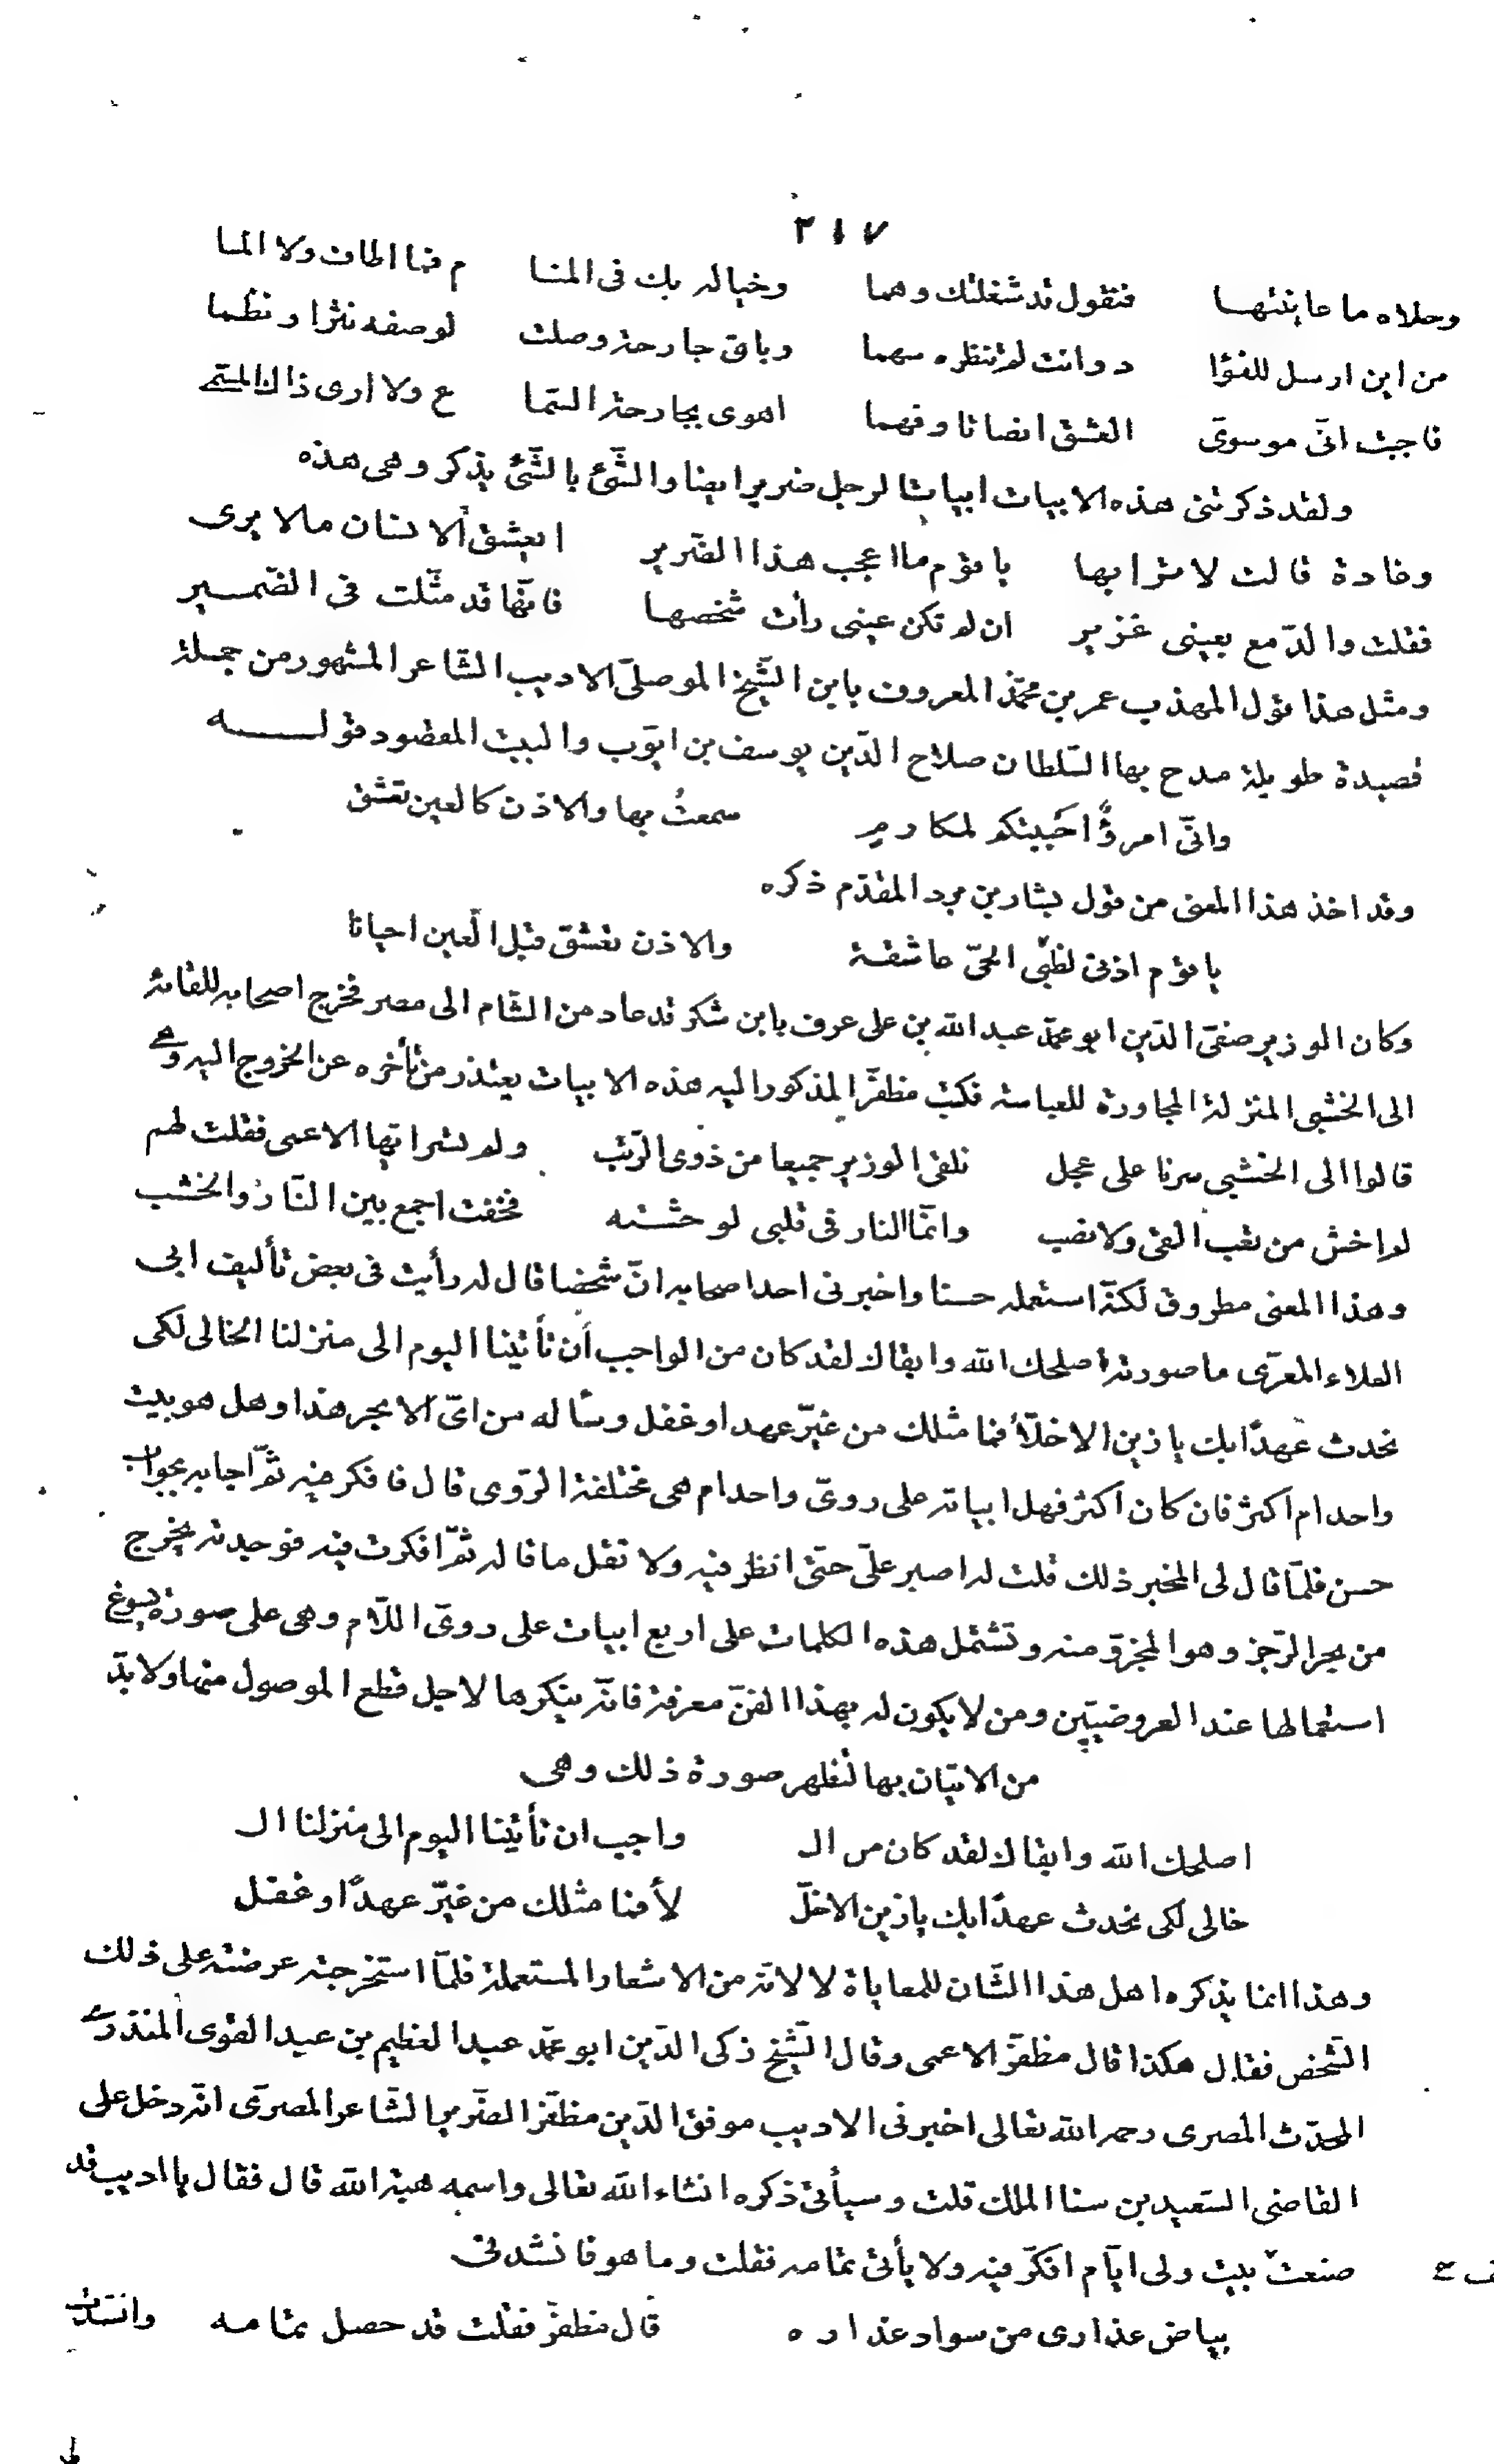 ٢١٧
وحلاه ما عاينتها فتقول قد شغلتك وهما وخياله بك في المنا م فما اطاف ولا الما
من اين ارسل للفؤا د وانت لم تنظره سهما وباى جارحة وصلت لوصفه نثرا ونظما
فاجبت انّى موسوىّ العشق انصاتا وفهما اهوى بجارحة السّما ع ولا ارى ذاك المسمّى
ولقد ذكرتنى هذه الابيات ابياتا لرجل ضرير ايضا والشّئ بالشّئ يذكر وهى هذه
وغادة قالت لاترابها يا قوم ما اعجب هذا الضّرير ايعشق الانسان مالا يرى
فقلت والدّمع بعينى غزير ان لم تكن عينى رأت شخصها فانّها قد مثّلت فى الضّمير
ومثل هذا قول المهذب عمر بن محمّد المعروف بابن الشّيخ الموصلىّ الاديب الشّاعر المشهور من جملة
قصيدة طويلة مدح بها السّلطان صلاح الدّين يوسف بن ايّوب والبيت المقصود قوله
وانّى امرؤٌ احببتكم لمكارمٍ سمعتُ بها والاذن كالعين تعشق
وقد اخذ هذا المعنى من قول بشار بن برد المقدّم ذكره
يا قوم اذنى لظبى الحىّ عاشقة والاذن تعشق قبل العين احيانا
وكان الوزير صفىّ الدّين ابو محمّد عبد الله بن على عرف بابن شكر قد عاد من الشّام الى مصر فخرج اصحابه للقائه
الى الخشبى المنزلة المجاورة للعباسة فكتب مظفّر المذكور اليه هذه الابيات يعتذر من تأخره عن الخروج اليه وهى
قالوا الى الخشبى سرنا على عجل نلقى الوزير جميعا من ذوى الرّتب ولم تسر ايّها الاعمى فقلت لهم
لم اخش من تعب القى ولا نصب وانّما النار فى قلبى لوحشته فخفت اجمع بين النّار والخشب
وهذا المعنى مطروق لكنّه استعمله حسنا واخبرنى احد اصحابه انّ شخصا قال له رأيت فى بعض تأليف ابى
العلاء المعرّى ما صورته اصلحك الله وابقاك لقد كان من الواجب أن تأتينا اليوم الى منزلنا الخالى لكى
نحدث عهدًا بك يا زين الاخلّاء فما مثلك من غيّر عهدا او غفل وسأله من اىّ الابحر هذا وهل هو بيت
واحد ام اكثر فان كان أكثر فهل ابياته على روىّ واحد ام هى مختلفة الرّوى قال فافكر فيه ثمّ اجابه بجواب
حسن فلمّا قال لى المخبر ذلك قلت له اصبر علىّ حتّى انظر فيه ولا تقل ما قاله ثمّ افكرت فيه فوجدته يخرج
من بحر الرّجز وهو المجزوّ منه وتشتمل هذه الكلمات على اربع ابيات على روىّ اللّام وهى على صورة يسوغ
استعمالها عند العروضيّين ومن لا يكون له بهذا الفنّ معرفة فانّه ينكرها لاجل قطع الموصول منها ولا بدّ
من الاتيان بها لتظهر صورة ذلك وهى
اصلحك الله وابقاك لقد كان من ال واجب ان تأتينا اليوم الى منزلنا ال
خالى لكى نحدث عهدًا بك يا زين الاخلّ لأ فما مثلك من غيّر عهدًا او غفل
وهذا انما يذكره اهل هذا الشّان للمعاياة لا لانّه من الاشعار المستعملة فلمّا استخرجته عرضته على ذلك
الشّخص فقال هكذا قال مظفّر الاعمى وقال الشّيخ زكى الدّين ابو محمّد عبد العظيم بن عبد القوى المنذرى
المحدّث المصرى رحمه الله تعالى اخبرنى الاديب موفق الدّين مظفّر الضّرير الشّاعر المصرّى انّه دخل على
القاضى السّعيد بن سنا الملك قلت وسيأتى ذكره انشاء الله تعالى واسمه هبة الله قال فقال يا اديب قد
صنعت بيت ولى ايّام افكّر فيه ولا يأتى تمامه فقلت وما هو فانشدنى
بياض عذارى من سواد عذاره قال مظفّر فقلت قد حصل تمامه وانشدت